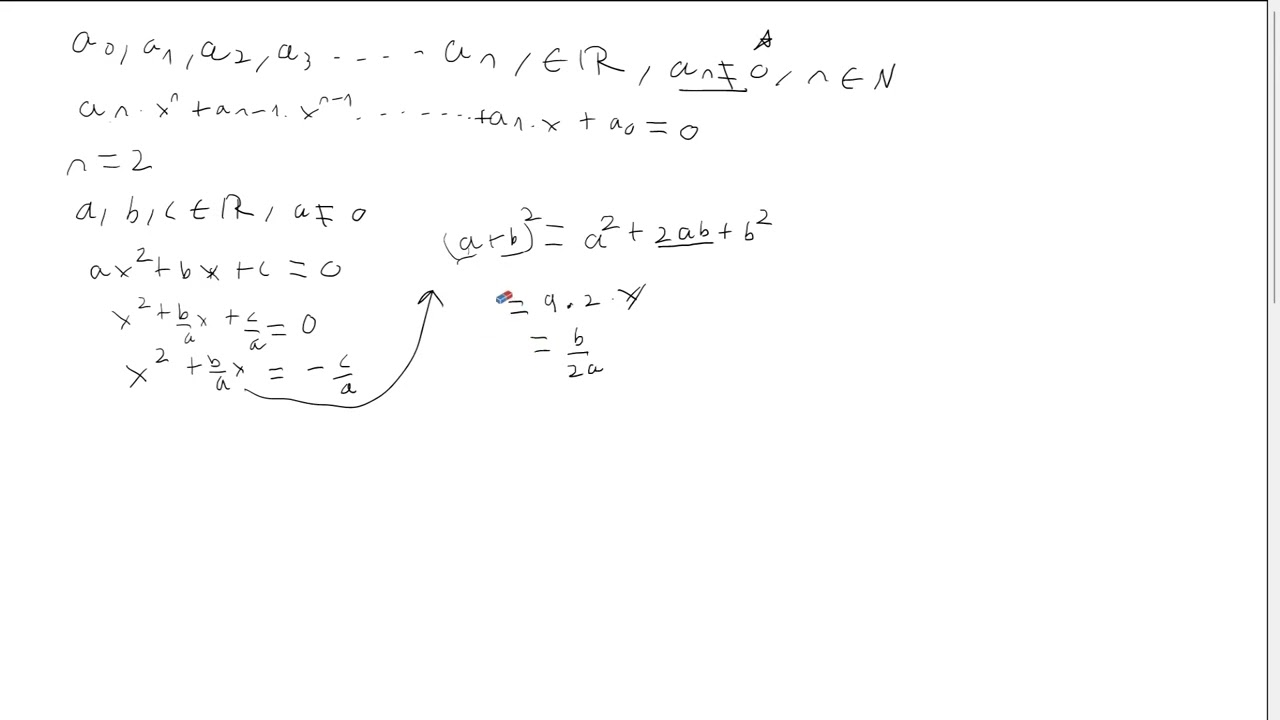 a₀, a₁, a₂, a₃ ..... aₙ, ∈ ℝ, aₙ ≠ 0, n ∈ N
aₙ · xⁿ + aₙ₋₁ · xⁿ⁻¹ ........ + a₁ · x + a₀ = 0
n = 2
a, b, c ∈ ℝ, a ≠ 0
ax² + bx + c = 0
x² + b/a x + c/a = 0
x² + b/a x = - c/a
(a+b)² = a² + 2ab + b²
= 9 · 2 · x
= b/2a